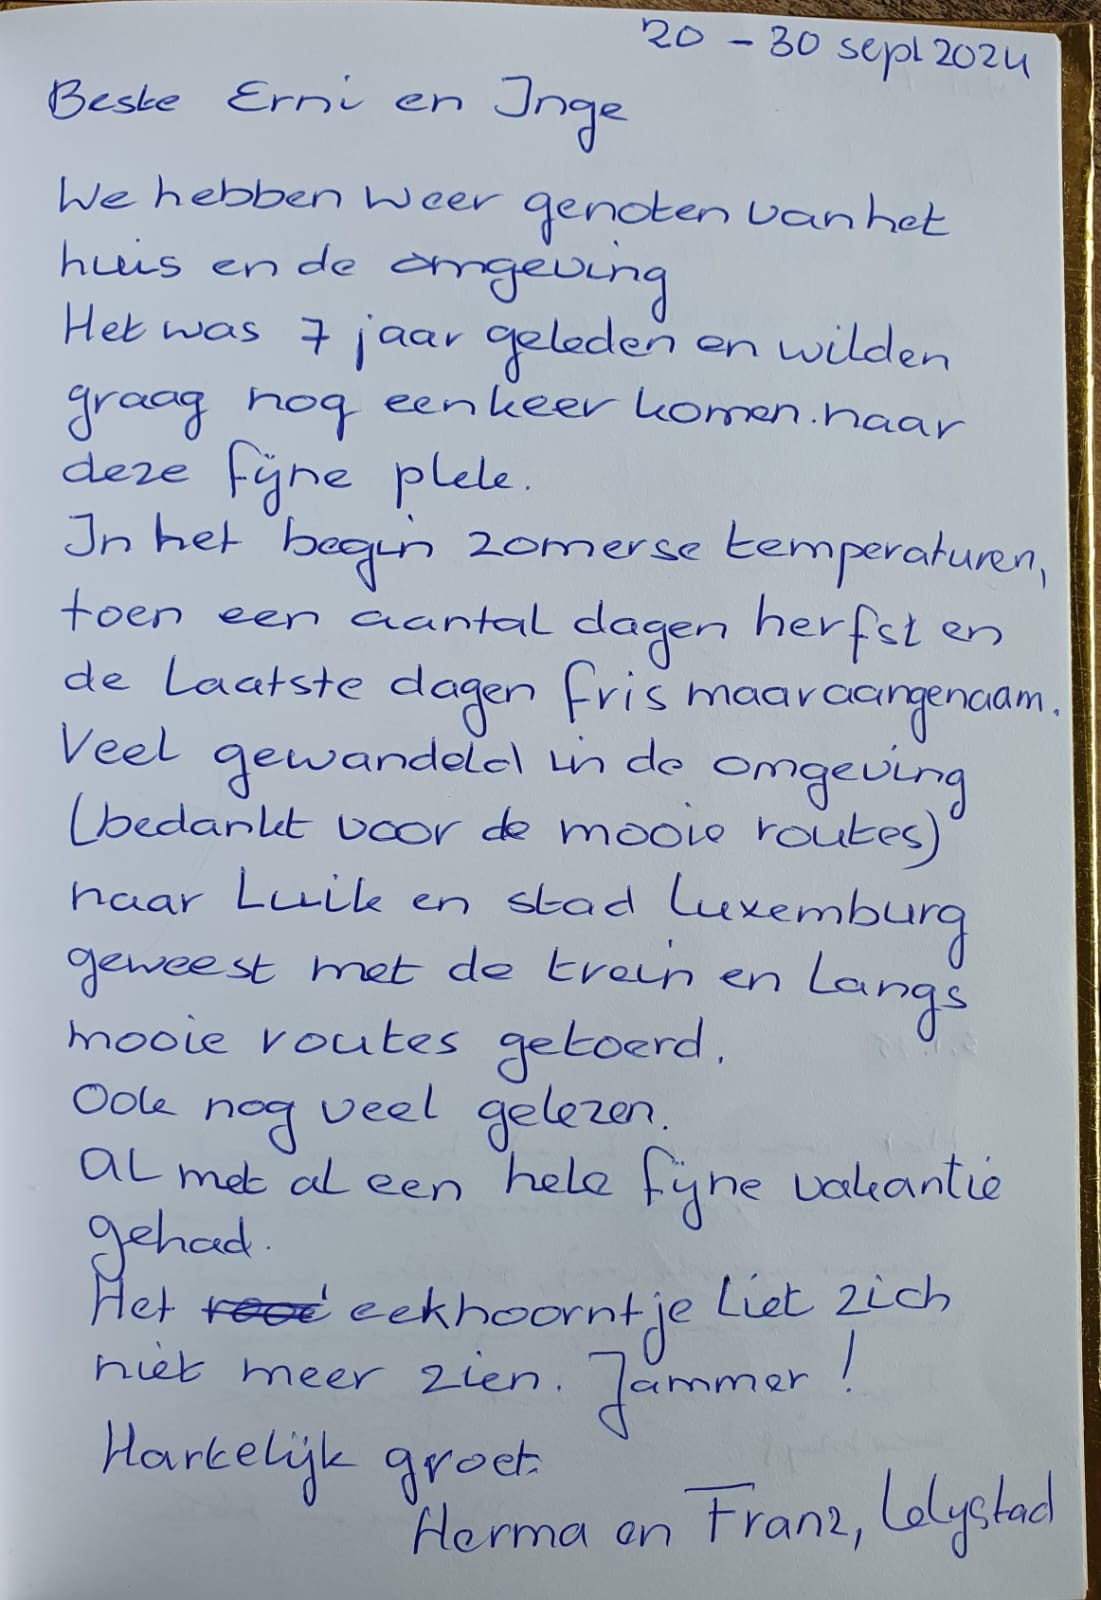 20 - 30 sept 2024
Beste Erni en Inge
We hebben weer genoten van het
huis en de omgeving
Het was 7 jaar geleden en wilden
graag nog een keer komen. naar
deze fijne plek.
In het begin zomerse temperaturen,
toen een aantal dagen herfst en
de laatste dagen fris maar aangenaam.
Veel gewandeld in de omgeving
(bedankt voor de mooie routes)
naar Luik en stad Luxemburg
geweest met de trein en langs
mooie routes getoerd.
Ook nog veel gelezen.
Al met al een hele fijne vakantie
gehad.
Het eekhoorntje liet zich
niet meer zien. Jammer!
Hartelijk groet.
Herma en Franz, Lelystad